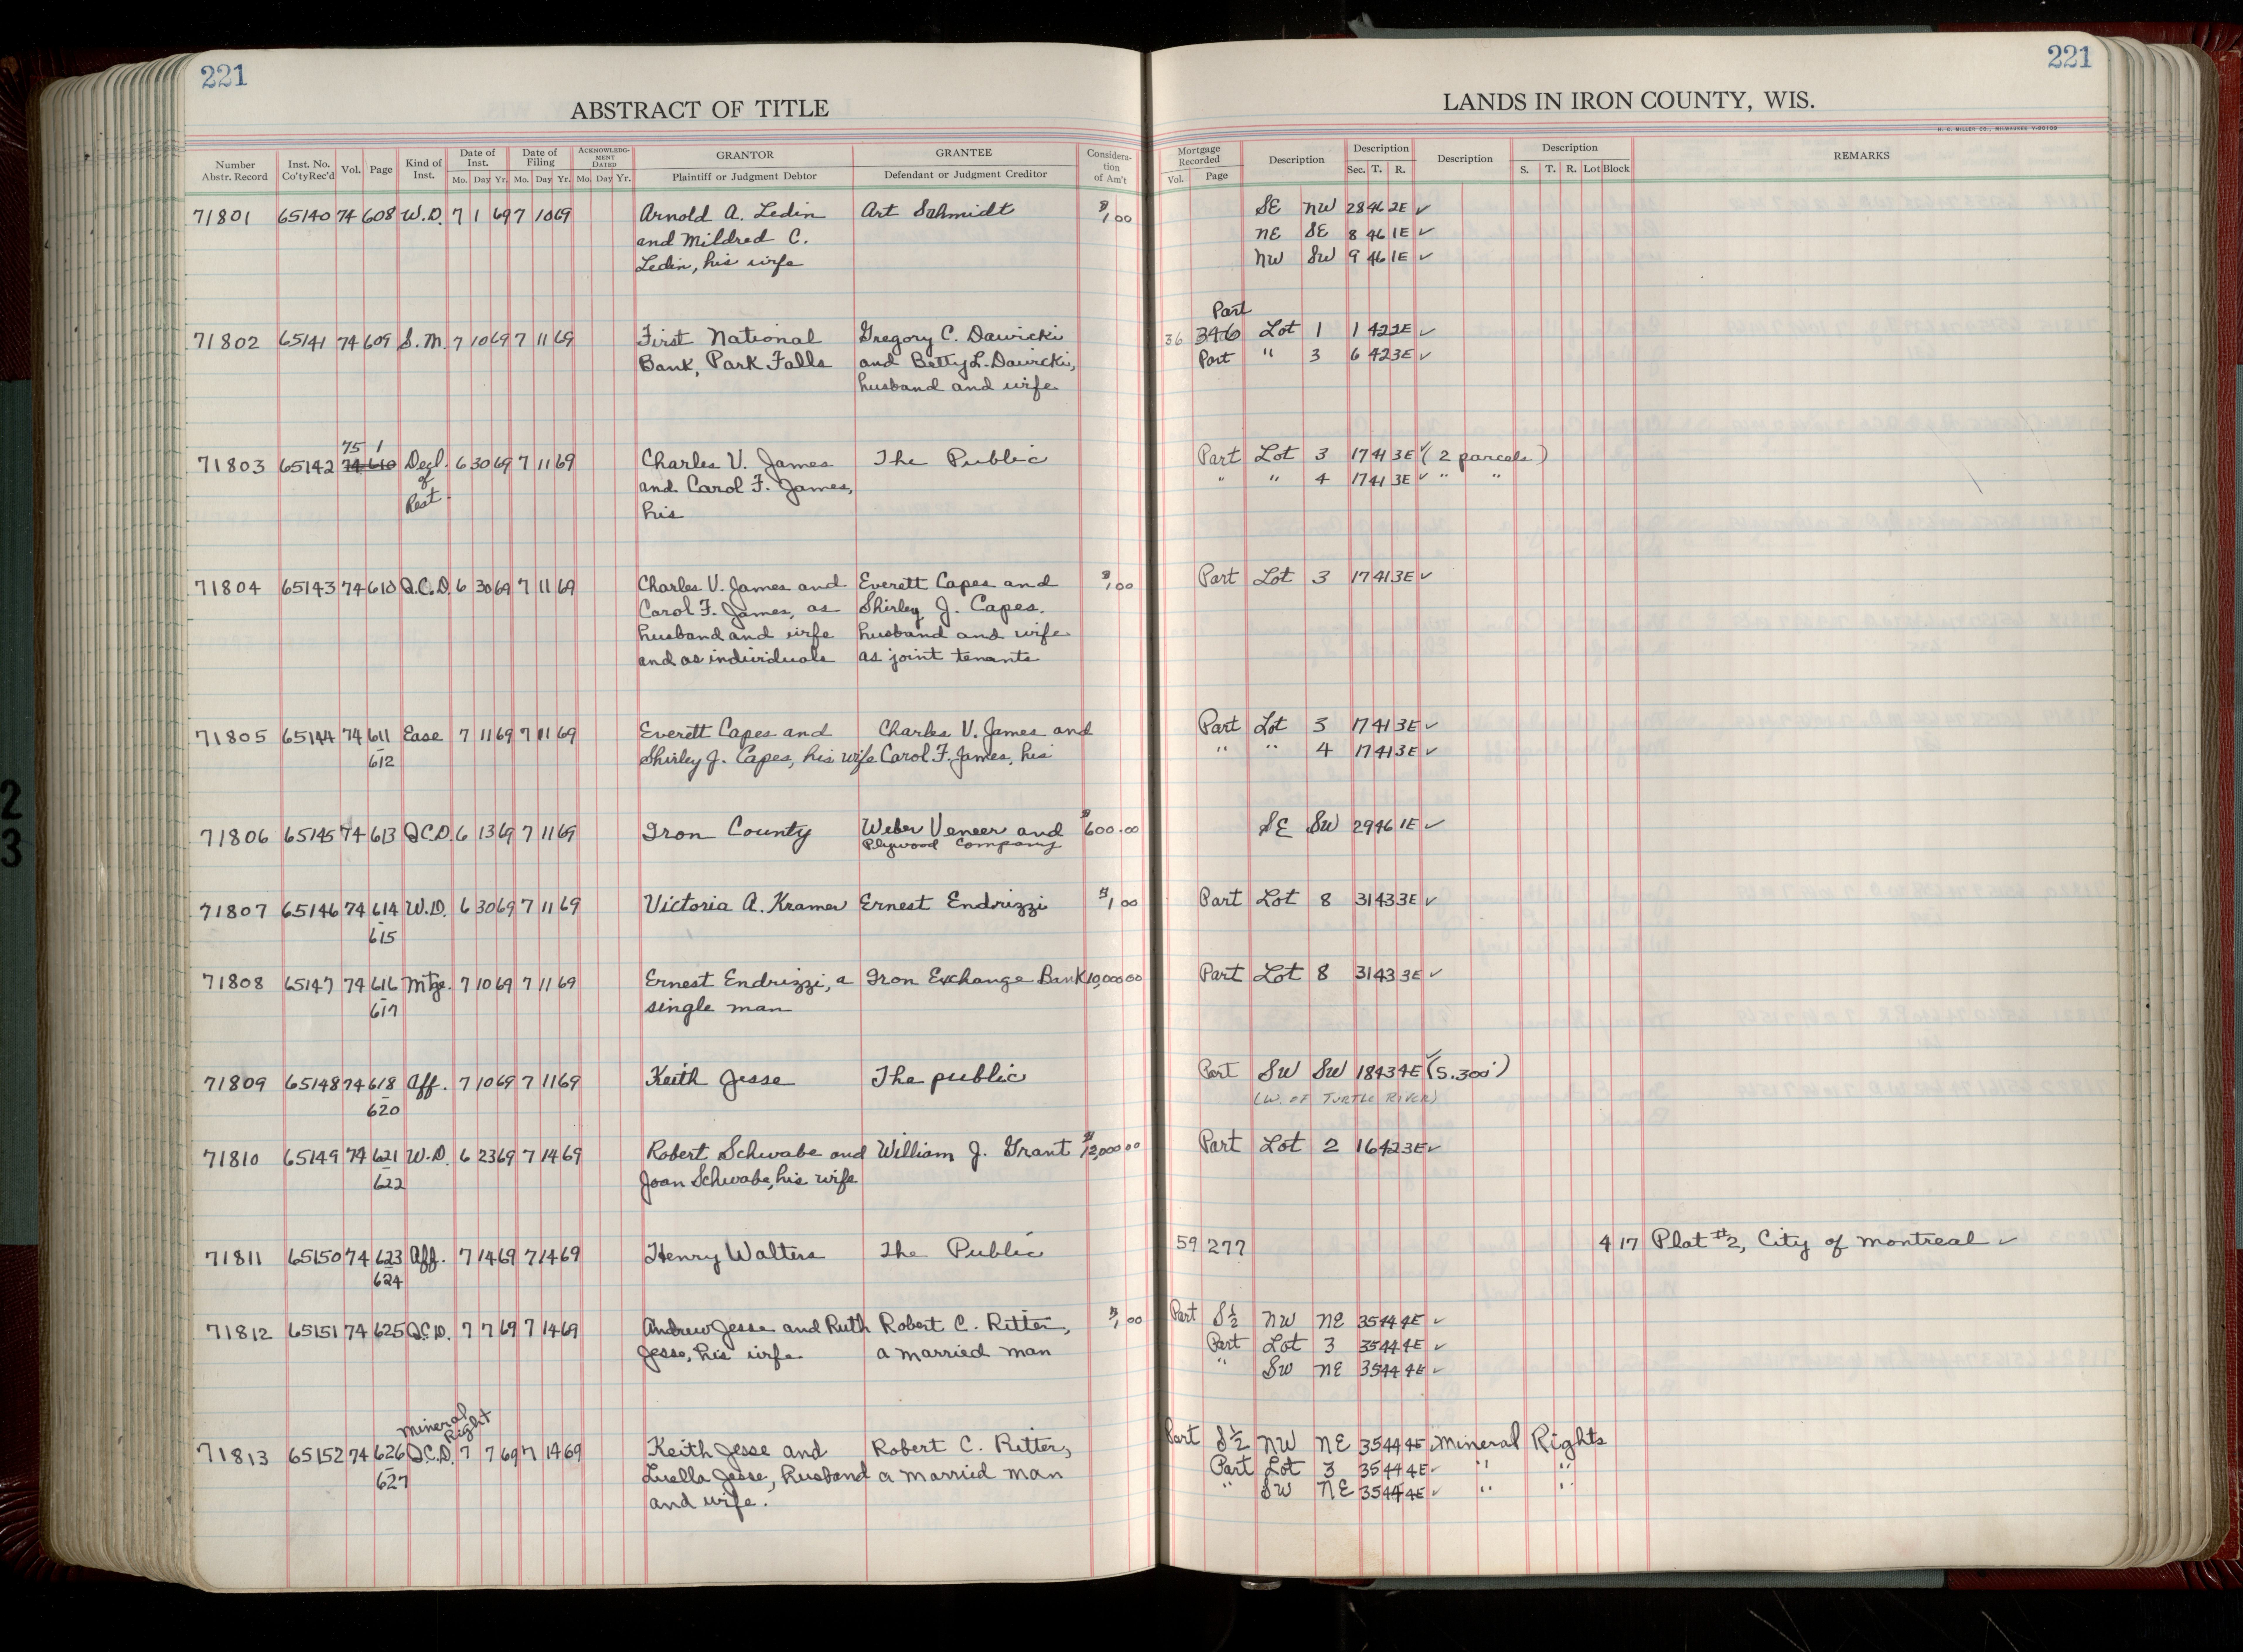 221
221
ABSTRACT OF TITLE
LANDS IN IRON COUNTY, WIS.
H. C. MILLER CO., MILWAUKEE
Number Abstr. Record Inst. No. Co'ty Rec'd Vol. Page Kind of Inst. Date of Inst. Mo. Day Yr. Date of Filing Mo. Day Yr. ACKNOWLEDGMENT DATED Mo. Day Yr. GRANTOR Plaintiff or Judgment Debtor GRANTEE Defendant or Judgment Creditor Consideration of Am't Mortgage Recorded Vol. Page Description Description Sec. T. R. Description Description S. T. R. Lot Block REMARKS
71801 65140 74 608 W.D. 7 1 69 7 10 69 Arnold A. Ledin Art Schmidt $1.00 SE NW 28 46 2E ✓
and Mildred C. NE SE 8 46 1E ✓
Ledin, his wife NW SW 9 46 1E ✓
Part
71802 65141 74 609 S.M. 7 10 69 7 11 69 First National Gregory C. Dawicki 36 346 Lot 1 1 42 2E ✓
Bank, Park Falls and Betty L. Dawicki, Part " 3 6 42 3E ✓
husband and wife
75 1
71803 65142 74 610 Decl. 6 30 69 7 11 69 Charles V. James The Public Part Lot 3 17 41 3E ✓ (2 parcels)
of and Carol F. James, " " 4 17 41 3E ✓ " "
Rest. his
71804 65143 74 610 Q.C.D. 6 30 69 7 11 69 Charles V. James and Everett Capes and $1.00 Part Lot 3 17 41 3E ✓
Carol F. James, as Shirley J. Capes.
husband and wife husband and wife
and as individuals as joint tenants
71805 65144 74 611 Ease 7 11 69 7 11 69 Everett Capes and Charles V. James and Part Lot 3 17 41 3E ✓
- 612 Shirley J. Capes, his wife Carol F. James, his " " 4 17 41 3E ✓
71806 65145 74 613 Q.C.D. 6 13 69 7 11 69 Iron County Weber Veneer and $600.00 SE SW 29 46 1E ✓
Plywood Company
71807 65146 74 614 W.D. 6 30 69 7 11 69 Victoria A. Kramer Ernest Endrizzi $1.00 Part Lot 8 31 43 3E ✓
- 615
71808 65147 74 616 Mtge. 7 10 69 7 11 69 Ernest Endrizzi, a Iron Exchange Bank 10,000.00 Part Lot 8 31 43 3E ✓
- 617 single man
71809 65148 74 618 Aff. 7 10 69 7 11 69 Keith Jesse The public Part SW SW 18 43 4E ✓ (S. 300')
- 620 (W. OF TURTLE RIVER)
71810 65149 74 621 W.D. 6 23 69 7 14 69 Robert Schwabe and William J. Grant $12,000.00 Part Lot 2 16 42 3E ✓
- 622 Joan Schwabe, his wife
71811 65150 74 623 Aff. 7 14 69 7 14 69 Henry Walters The Public 59 277 4 17 Plat #2, City of Montreal ✓
- 624
71812 65151 74 625 Q.C.D. 7 7 69 7 14 69 Andrew Jesse and Ruth Robert C. Ritter, $1.00 Part S½ NW NE 35 44 4E ✓
Jesse, his wife a married man Part Lot 3 35 44 4E ✓
" SW NE 35 44 4E ✓
Mineral Right
71813 65152 74 626 Q.C.D. 7 7 69 7 14 69 Keith Jesse and Robert C. Ritter, Part S½ NW NE 35 44 4E Mineral Rights
- 627 Luella Jesse, husband a married man Part Lot 3 35 44 4E ✓ " "
and wife. " SW NE 35 44 4E ✓ " "
2
3